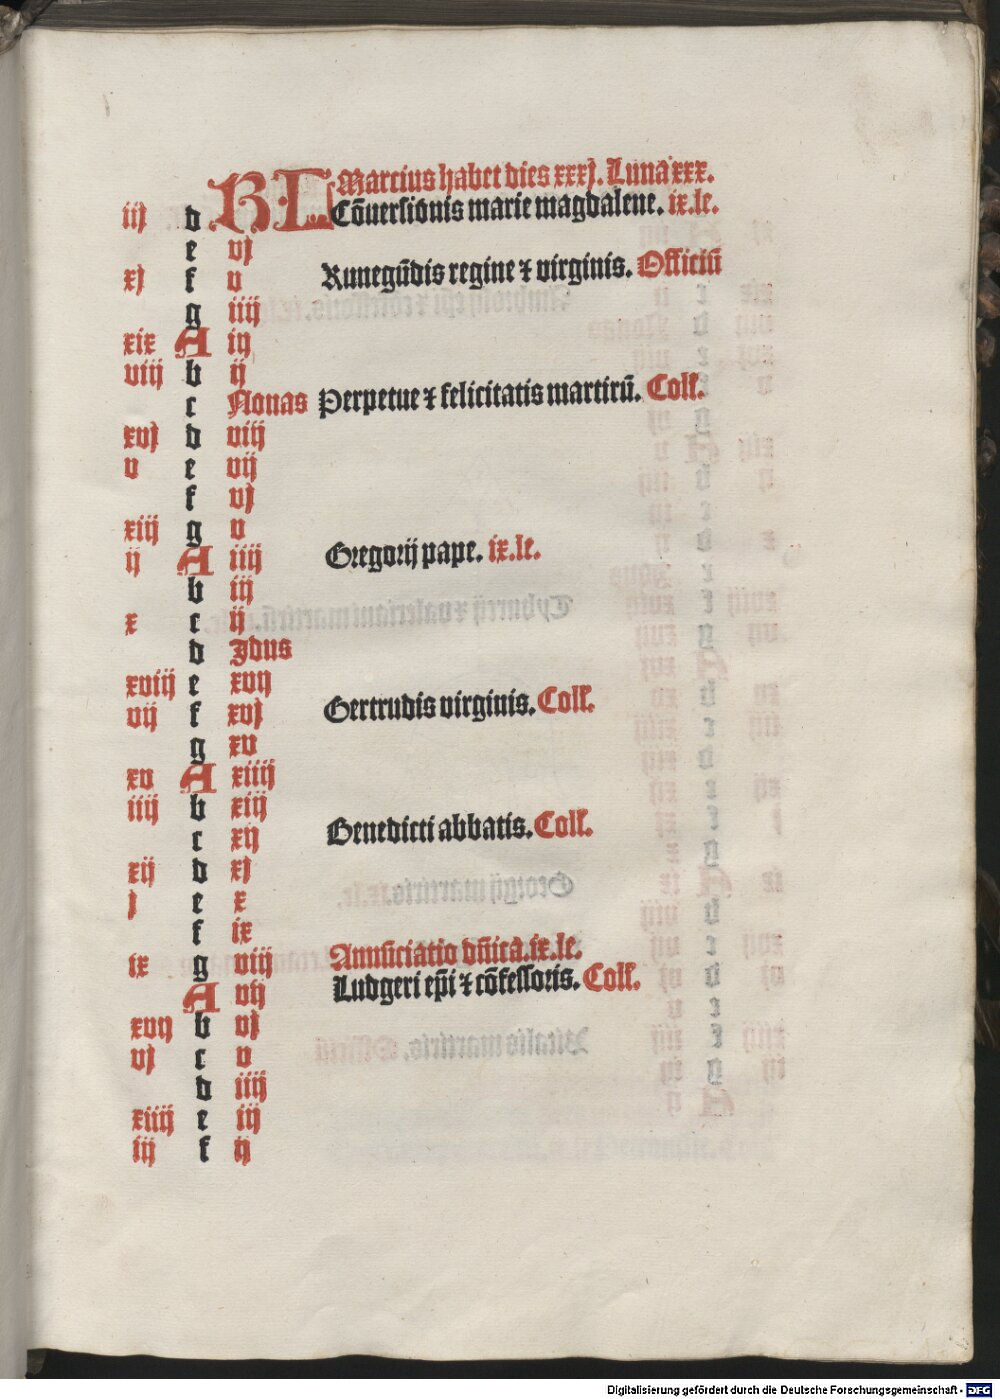 Marcius habet dies xxxj. Luna xxx.
iij d KL Cōuersionis marie magdalene. ix.le.
e vj
xj f v Kunegūdis regine ⁊ virginis. Officiū
g iiij
xix A iij
viij b ij
c Nonas Perpetue ⁊ felicitatis martirū. Coll.
xvj d viij
v e vij
f vj
xiij g v
ij A iiij Gregorij pape. ix.le.
b iij
x c ij
d Idus
xviij e xvij
vij f xvj Gertrudis virginis. Coll.
g xv
xv A xiiij
iiij b xiij
c xij Benedicti abbatis. Coll.
xij d xj
j e x
f ix
ix g viij Annūciatio dn̄ica. ix.le.
A vij Ludgeri ep̄i ⁊ cōfessoris. Coll.
xvij b vj
vj c v
d iiij
xiiij e iij
iij f ij
Digitalisierung gefördert durch die Deutsche Forschungsgemeinschaft - DFG